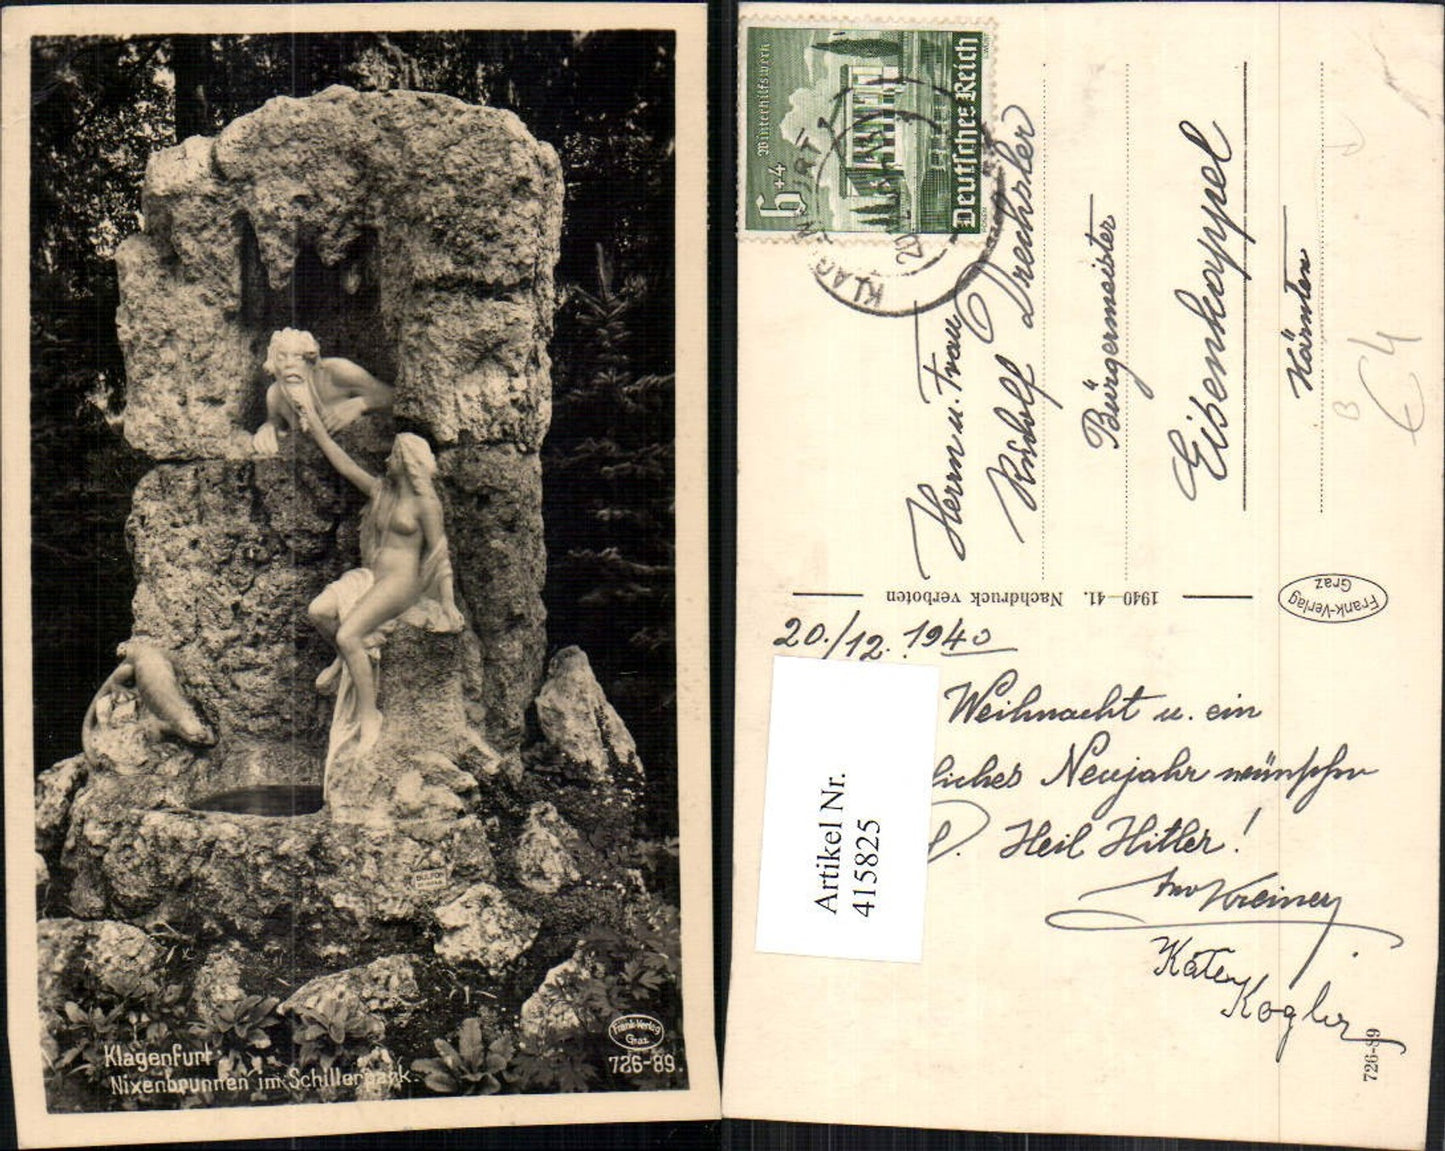 Klagenfurt:
Nixenbrunnen im Schillerpark.
Frank-Verlag
Graz
726-89.
Winterhilfswerk
6+4
Deutsches Reich
KLAGENFURT
Herrn u. Frau
Rudolf Drechsler
Bürgermeister
Eisenkappel
Kärnten
€ 4
B
1940-41. Nachdruck verboten
Frank-Verlag
Graz
20./12. 1940
Weihnacht u. ein
liches Neujahr wünschen
Heil Hitler!
Kreiner
Kogler
Artikel Nr.
415825
726-89